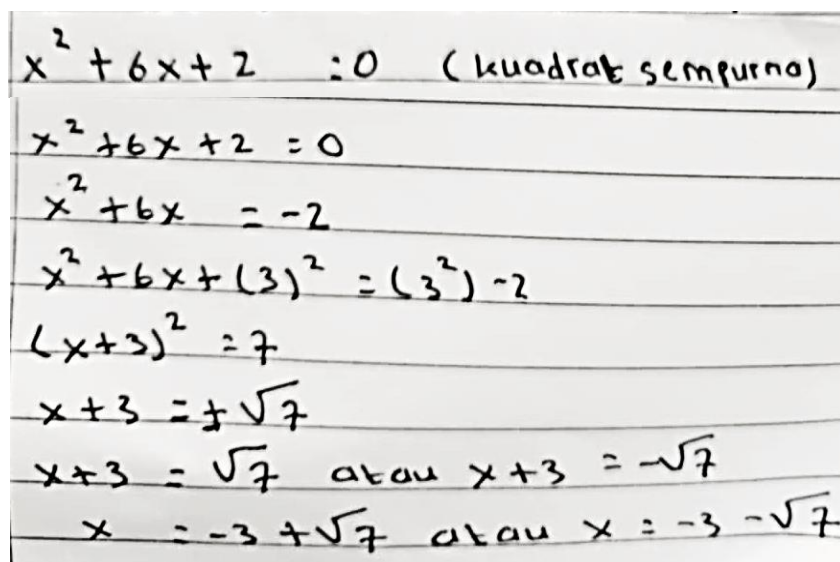 x² + 6x + 2 = 0 (kuadrat sempurna)
x² + 6x + 2 = 0
x² + 6x = -2
x² + 6x + (3)² = (3²) - 2
(x+3)² = 7
x + 3 = ± √7
x + 3 = √7 atau x + 3 = -√7
x = -3 + √7 atau x = -3 - √7